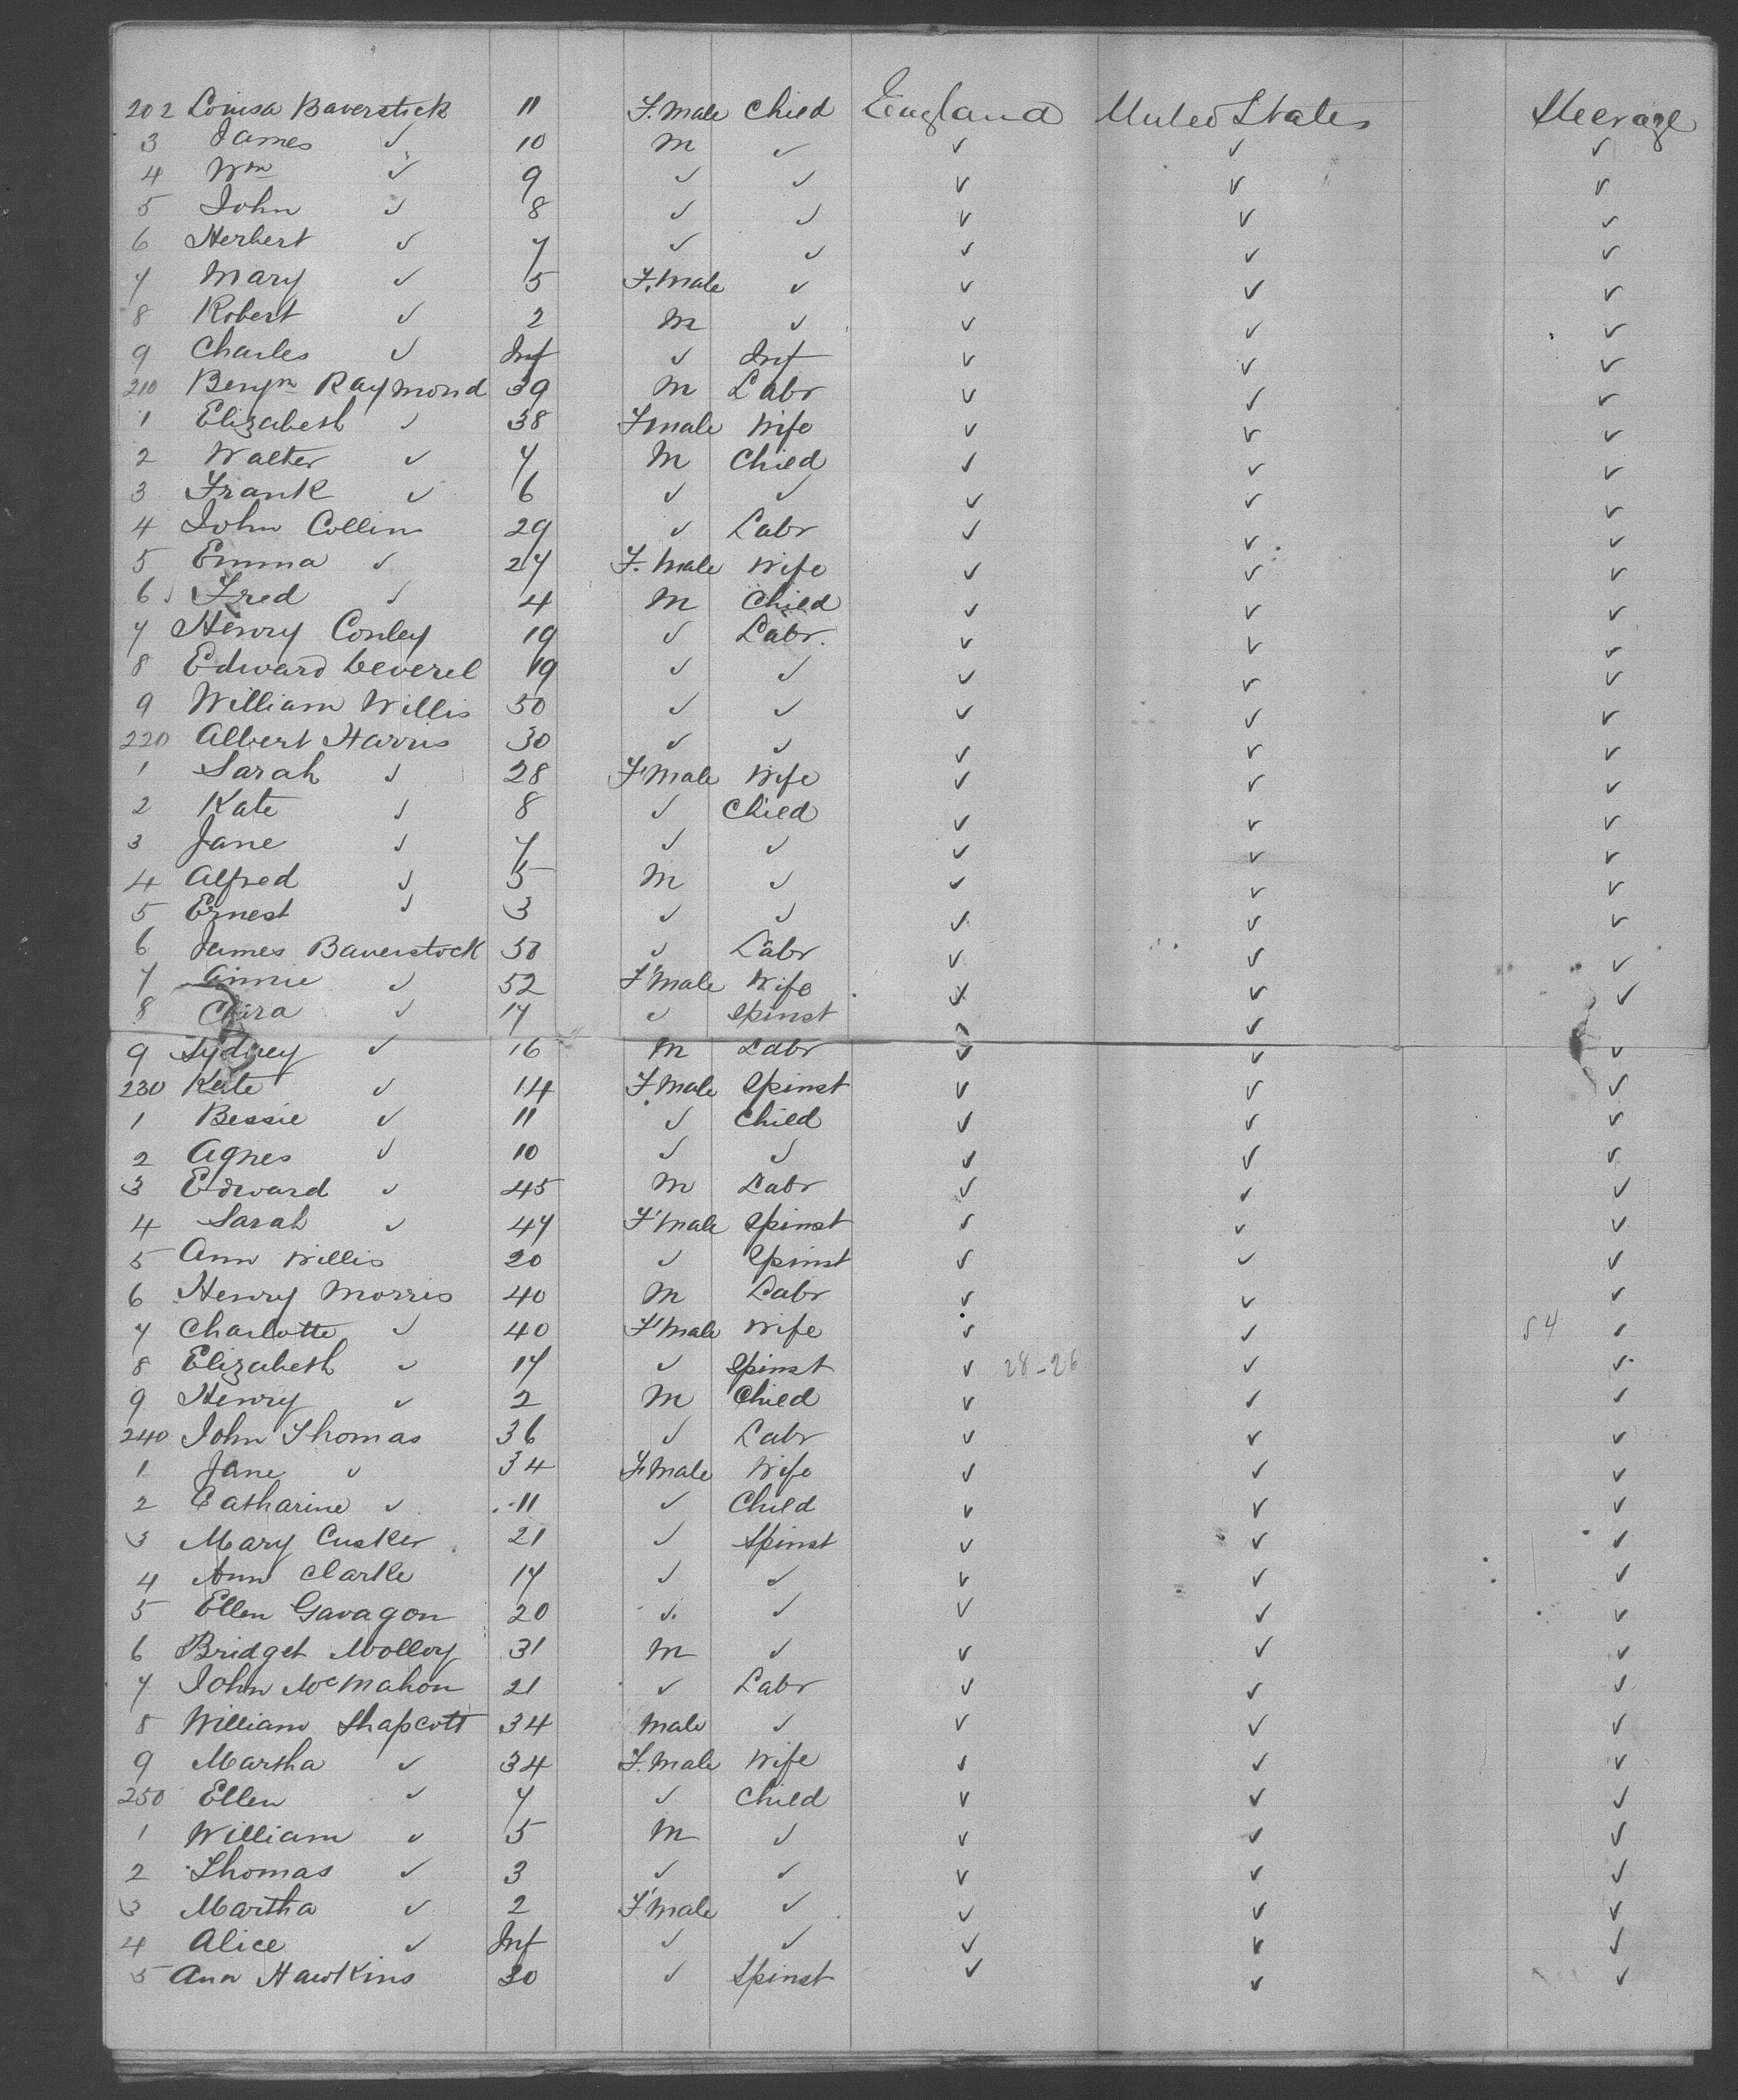 202 Louisa Baverstick 11 F.Male Child England United States Steerage
3 James ✓ 10 M ✓ ✓ ✓ ✓
4 Wm ✓ 9 ✓ ✓ ✓ ✓ ✓
5 John ✓ 8 ✓ ✓ ✓ ✓ ✓
6 Herbert ✓ 7 ✓ ✓ ✓ ✓ ✓
7 Mary ✓ 5 F.Male ✓ ✓ ✓ ✓
8 Robert ✓ 2 M ✓ ✓ ✓ ✓
9 Charles ✓ Inf ✓ Inf ✓ ✓ ✓
210 Benjn Raymond 39 M Labr ✓ ✓ ✓
1 Elizabeth ✓ 38 Fmale Wife ✓ ✓ ✓
2 Walter ✓ 7 M Child ✓ ✓ ✓
3 Frank ✓ 6 ✓ ✓ ✓ ✓ ✓
4 John Collin 29 ✓ Labr ✓ ✓ ✓
5 Emma ✓ 27 F.Male Wife ✓ ✓ ✓
6 Fred ✓ 4 M Child ✓ ✓ ✓
7 Henry Conley 19 ✓ Labr. ✓ ✓ ✓
8 Edward Deverel 19 ✓ ✓ ✓ ✓ ✓
9 William Willis 50 ✓ ✓ ✓ ✓ ✓
220 Albert Harris 30 ✓ ✓ ✓ ✓ ✓
1 Sarah ✓ 28 F'Male Wife ✓ ✓ ✓
2 Kate ✓ 8 ✓ Child ✓ ✓ ✓
3 Jane ✓ 7 ✓ ✓ ✓ ✓ ✓
4 Alfred ✓ 5 M ✓ ✓ ✓ ✓
5 Ernest ✓ 3 ✓ ✓ ✓ ✓ ✓
6 James Baverstock 50 ✓ Labr ✓ ✓ ✓
7 Annie ✓ 52 F'Male Wife ✓ ✓ ✓
8 ✓ 17 ✓ Spinst ✓ ✓
9 Sydney ✓ 16 M Labr ✓ ✓ ✓
230 Kate ✓ 14 F.Male Spinst ✓ ✓ ✓
1 Bessie ✓ 11 ✓ Child ✓ ✓ ✓
2 Agnes ✓ 10 ✓ ✓ ✓ ✓ ✓
3 Edward ✓ 45 M Labr ✓ ✓ ✓
4 Sarah ✓ 47 F'Male Spinst ✓ ✓ ✓
5 Ann Willis 20 ✓ Spinst ✓ ✓ ✓
6 Henry Morris 40 M Labr ✓ ✓ ✓
7 Charlotte ✓ 40 F'Male Wife ✓ ✓ 54 ✓
8 Elizabeth ✓ 17 ✓ Spinst ✓ 28-26 ✓ ✓
9 Henry ✓ 2 M Child ✓ ✓ ✓
240 John Thomas 36 ✓ Labr ✓ ✓ ✓
1 Jane ✓ 34 F.Male Wife ✓ ✓ ✓
2 Catharine ✓ 11 ✓ Child ✓ ✓ ✓
3 Mary Cusker 21 ✓ Spinst ✓ ✓ ✓
4 Ann Clarke 17 ✓ ✓ ✓ ✓ ✓
5 Ellen Gavagon 20 ✓ ✓ ✓ ✓ ✓
6 Bridget Molloy 31 M ✓ ✓ ✓ ✓
7 John McMahon 21 ✓ Labr ✓ ✓ ✓
8 William Shapcott 34 Male ✓ ✓ ✓ ✓
9 Martha ✓ 34 F.Male Wife ✓ ✓ ✓
250 Ellen ✓ 7 ✓ Child ✓ ✓ ✓
1 William ✓ 5 M ✓ ✓ ✓ ✓
2 Thomas ✓ 3 ✓ ✓ ✓ ✓ ✓
3 Martha ✓ 2 F'Male ✓ ✓ ✓ ✓
4 Alice ✓ Inf ✓ ✓ ✓ ✓ ✓
5 Ann Hawkins 30 ✓ Spinst ✓ ✓ ✓